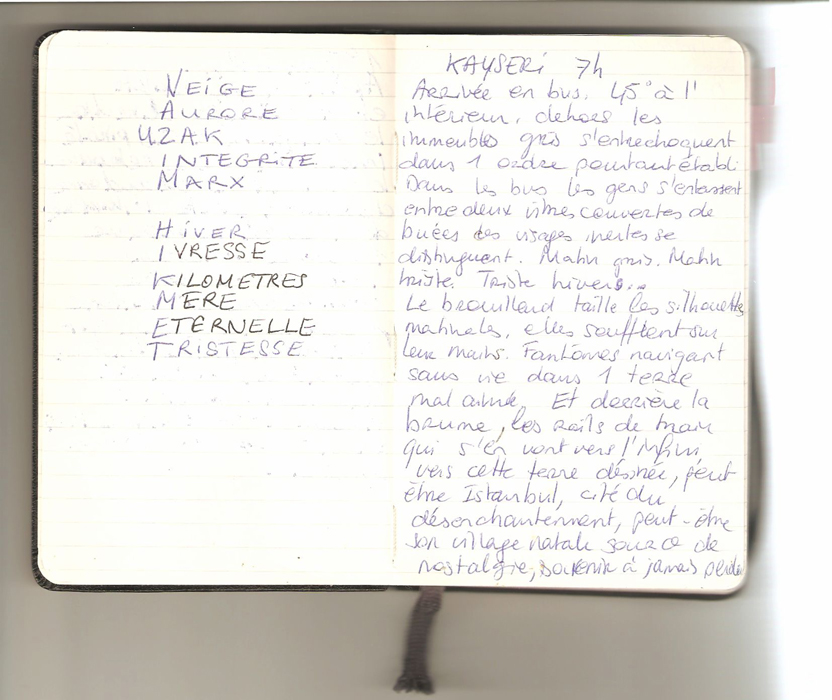 NEIGE
AURORE
UZAK
INTEGRITE
MARX
HIVER
IVRESSE
KILOMETRES
MERE
ETERNELLE
TRISTESSE
KAYSERI 7h
Arrivée en bus. 45° à l'
intérieur, dehors les
immeubles gris s'entrechoquent
dans 1 ordre pourtant établi
Dans les bus les gens s'entassent
entre deux vitres couvertes de
buées des visages inertes se
distinguent. Matin gris. Matin
triste. Triste hivers...
Le brouillard taille les silhouettes
matinales, elles soufflent sur
leur mains. Fantômes navigant
sans vie dans 1 terre
mal aimé. Et derrière la
brume, les rails de train
qui s'en vont vers l'infini,
vers cette terre désirée, peut
être Istanbul, cité du
désenchantement, peut-être
son village natale source de
nostalgie, souvenir à jamais perdu